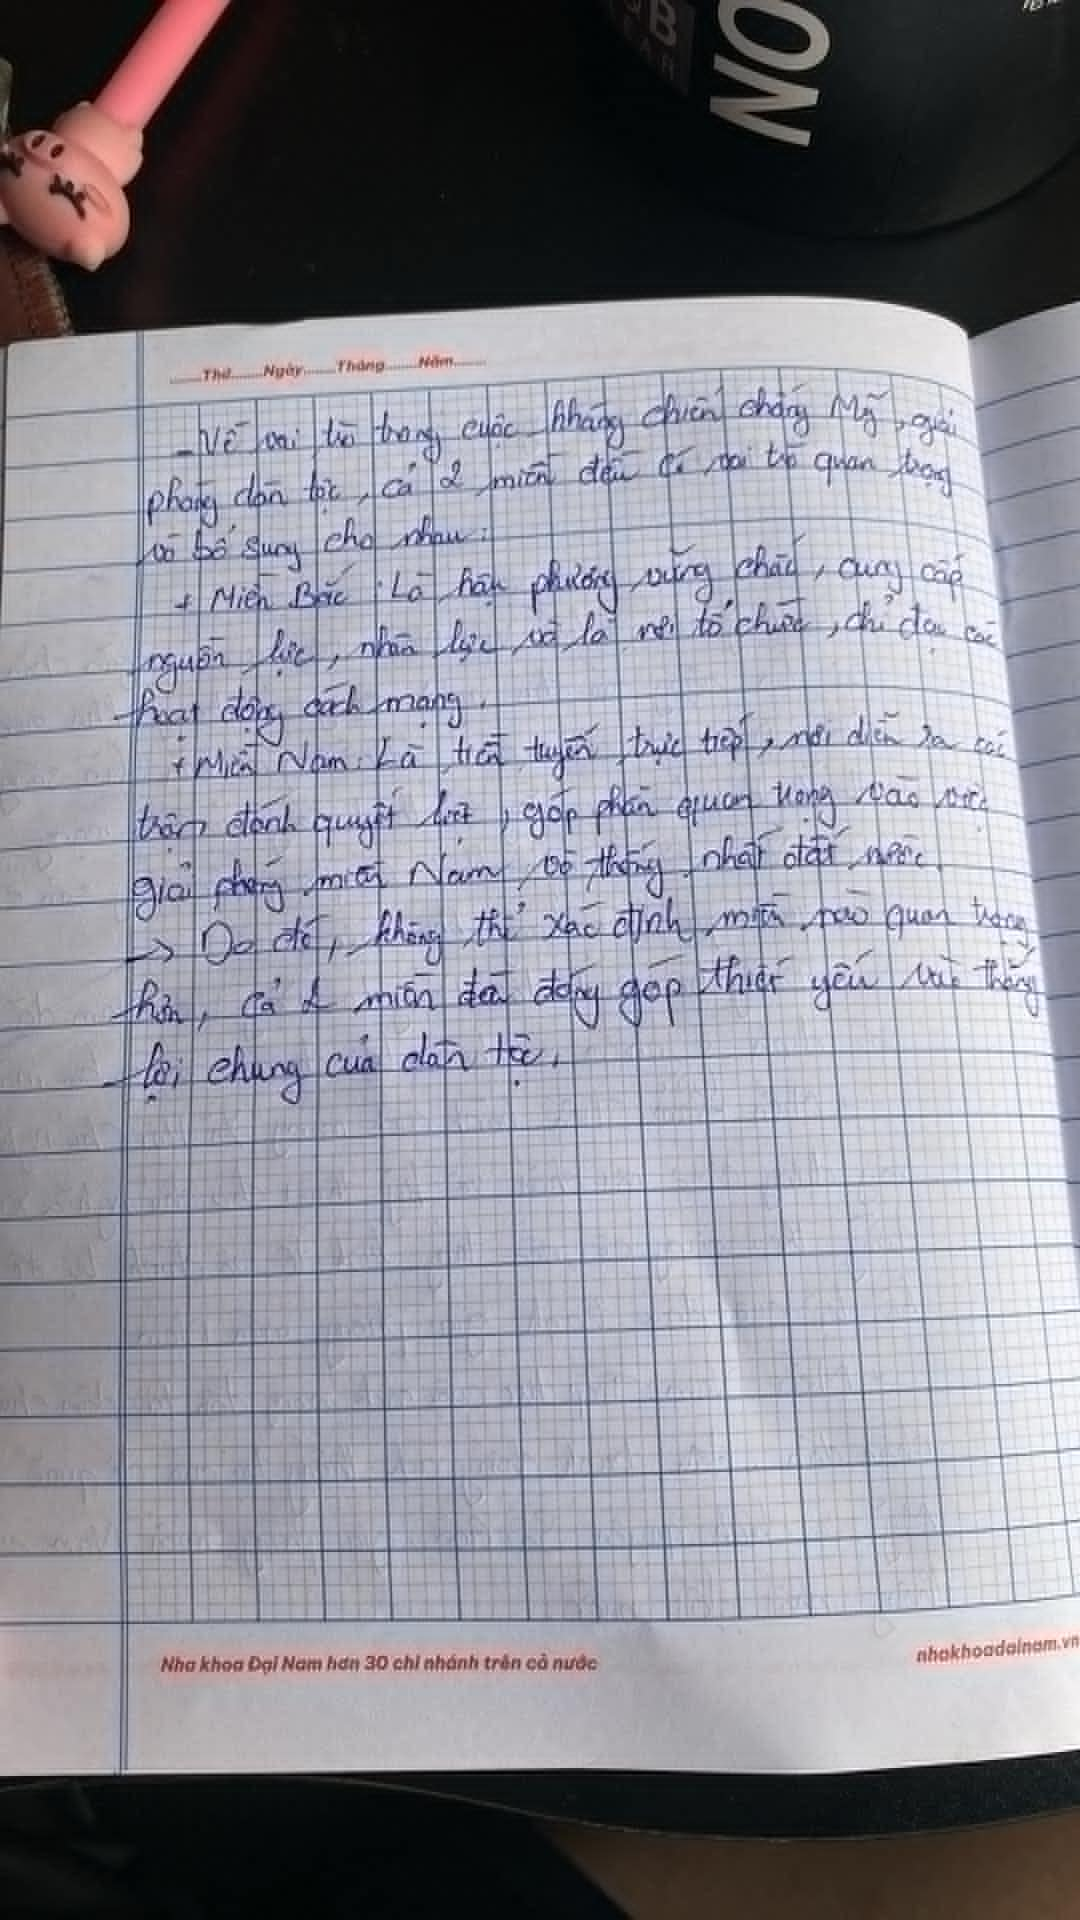 NO
B
Thứ......Ngày......Tháng......Năm......
- Về vai trò trong cuộc kháng chiến chống Mỹ, giải
phóng dân tộc, cả 2 miền đều có vai trò quan trọng
và bổ sung cho nhau:
+ Miền Bắc: Là hậu phương vững chắc, cung cấp
nguồn lực, nhân lực và là nơi tổ chức, chỉ đạo các
hoạt động cách mạng.
+ Miền Nam: Là tiền tuyến trực tiếp, nơi diễn ra các
trận đánh quyết liệt, góp phần quan trọng vào việc
giải phóng miền Nam, và thống nhất đất nước.
-> Do đó, không thể xác định miền nào quan trọng
hơn, cả 2 miền đều đóng góp thiết yếu vào thắng
lợi chung của dân tộc.
Nha khoa Đại Nam hơn 30 chi nhánh trên cả nước
nhakhoadainam.vn